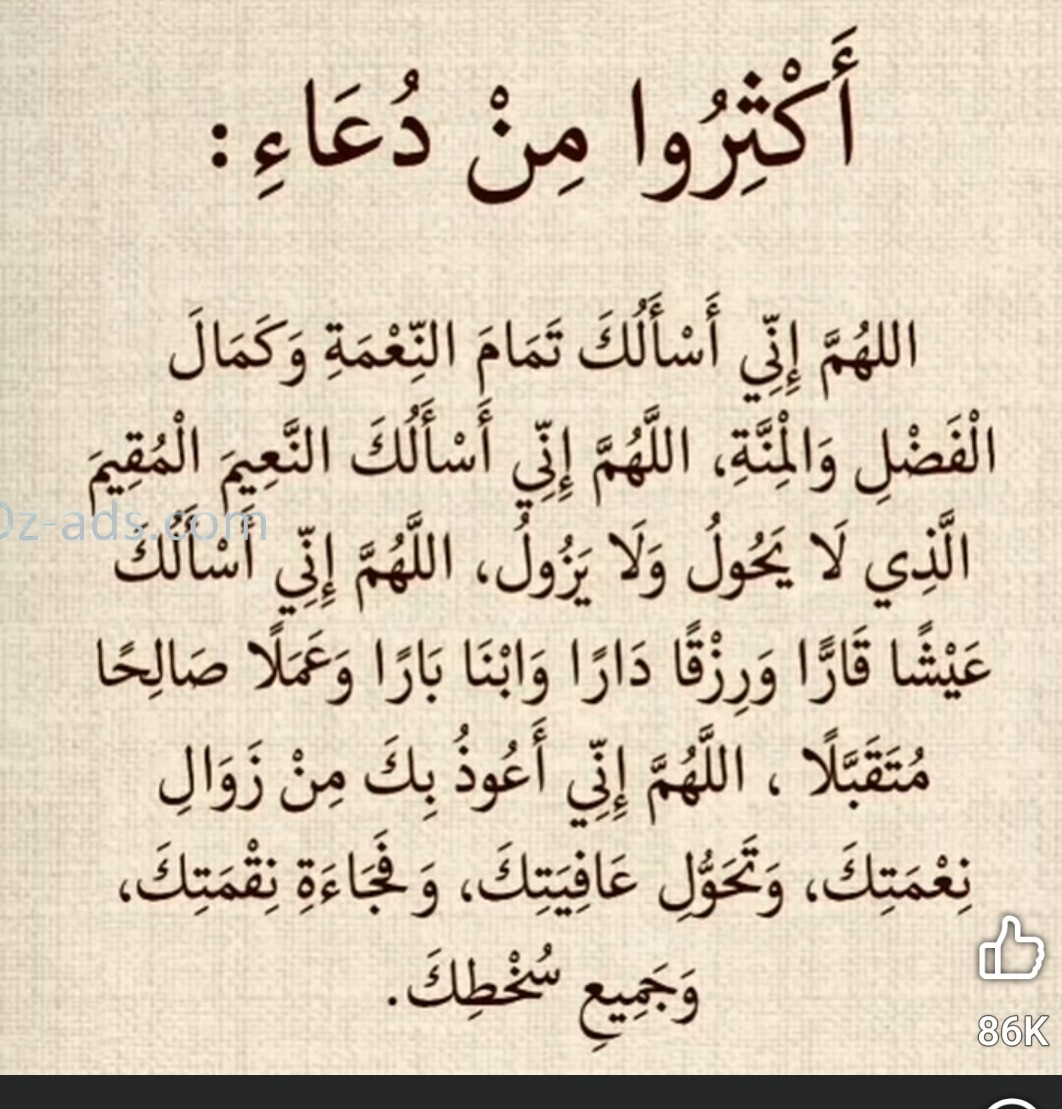 أَكْثِرُوا مِنْ دُعَاءِ :
اللهُمَّ إِنِّي أَسْأَلُكَ تَمَامَ النِّعْمَةِ وَكَمَالَ
الْفَضْلِ وَالْمِنَّةِ، اللَّهُمَّ إِنِّي أَسْأَلُكَ النَّعِيمَ الْمُقِيمَ
Oz-ads.com
الَّذِي لَا يَحُولُ وَلَا يَزُولُ، اللَّهُمَّ إِنِّي أَسْأَلُكَ
عَيْشًا قَارًّا وَرِزْقًا دَارًا وَابْنَا بَارًا وَعَمَلًا صَالِحًا
مُتَقَبَّلًا ، اللَّهُمَّ إِنِّي أَعُوذُ بِكَ مِنْ زَوَالِ
نِعْمَتِكَ، وَتَحَوُّلِ عَافِيَتِكَ، وَفَجَاءَةِ نِقْمَتِكَ،
وَجَمِيعِ سُخْطِكَ.
86K